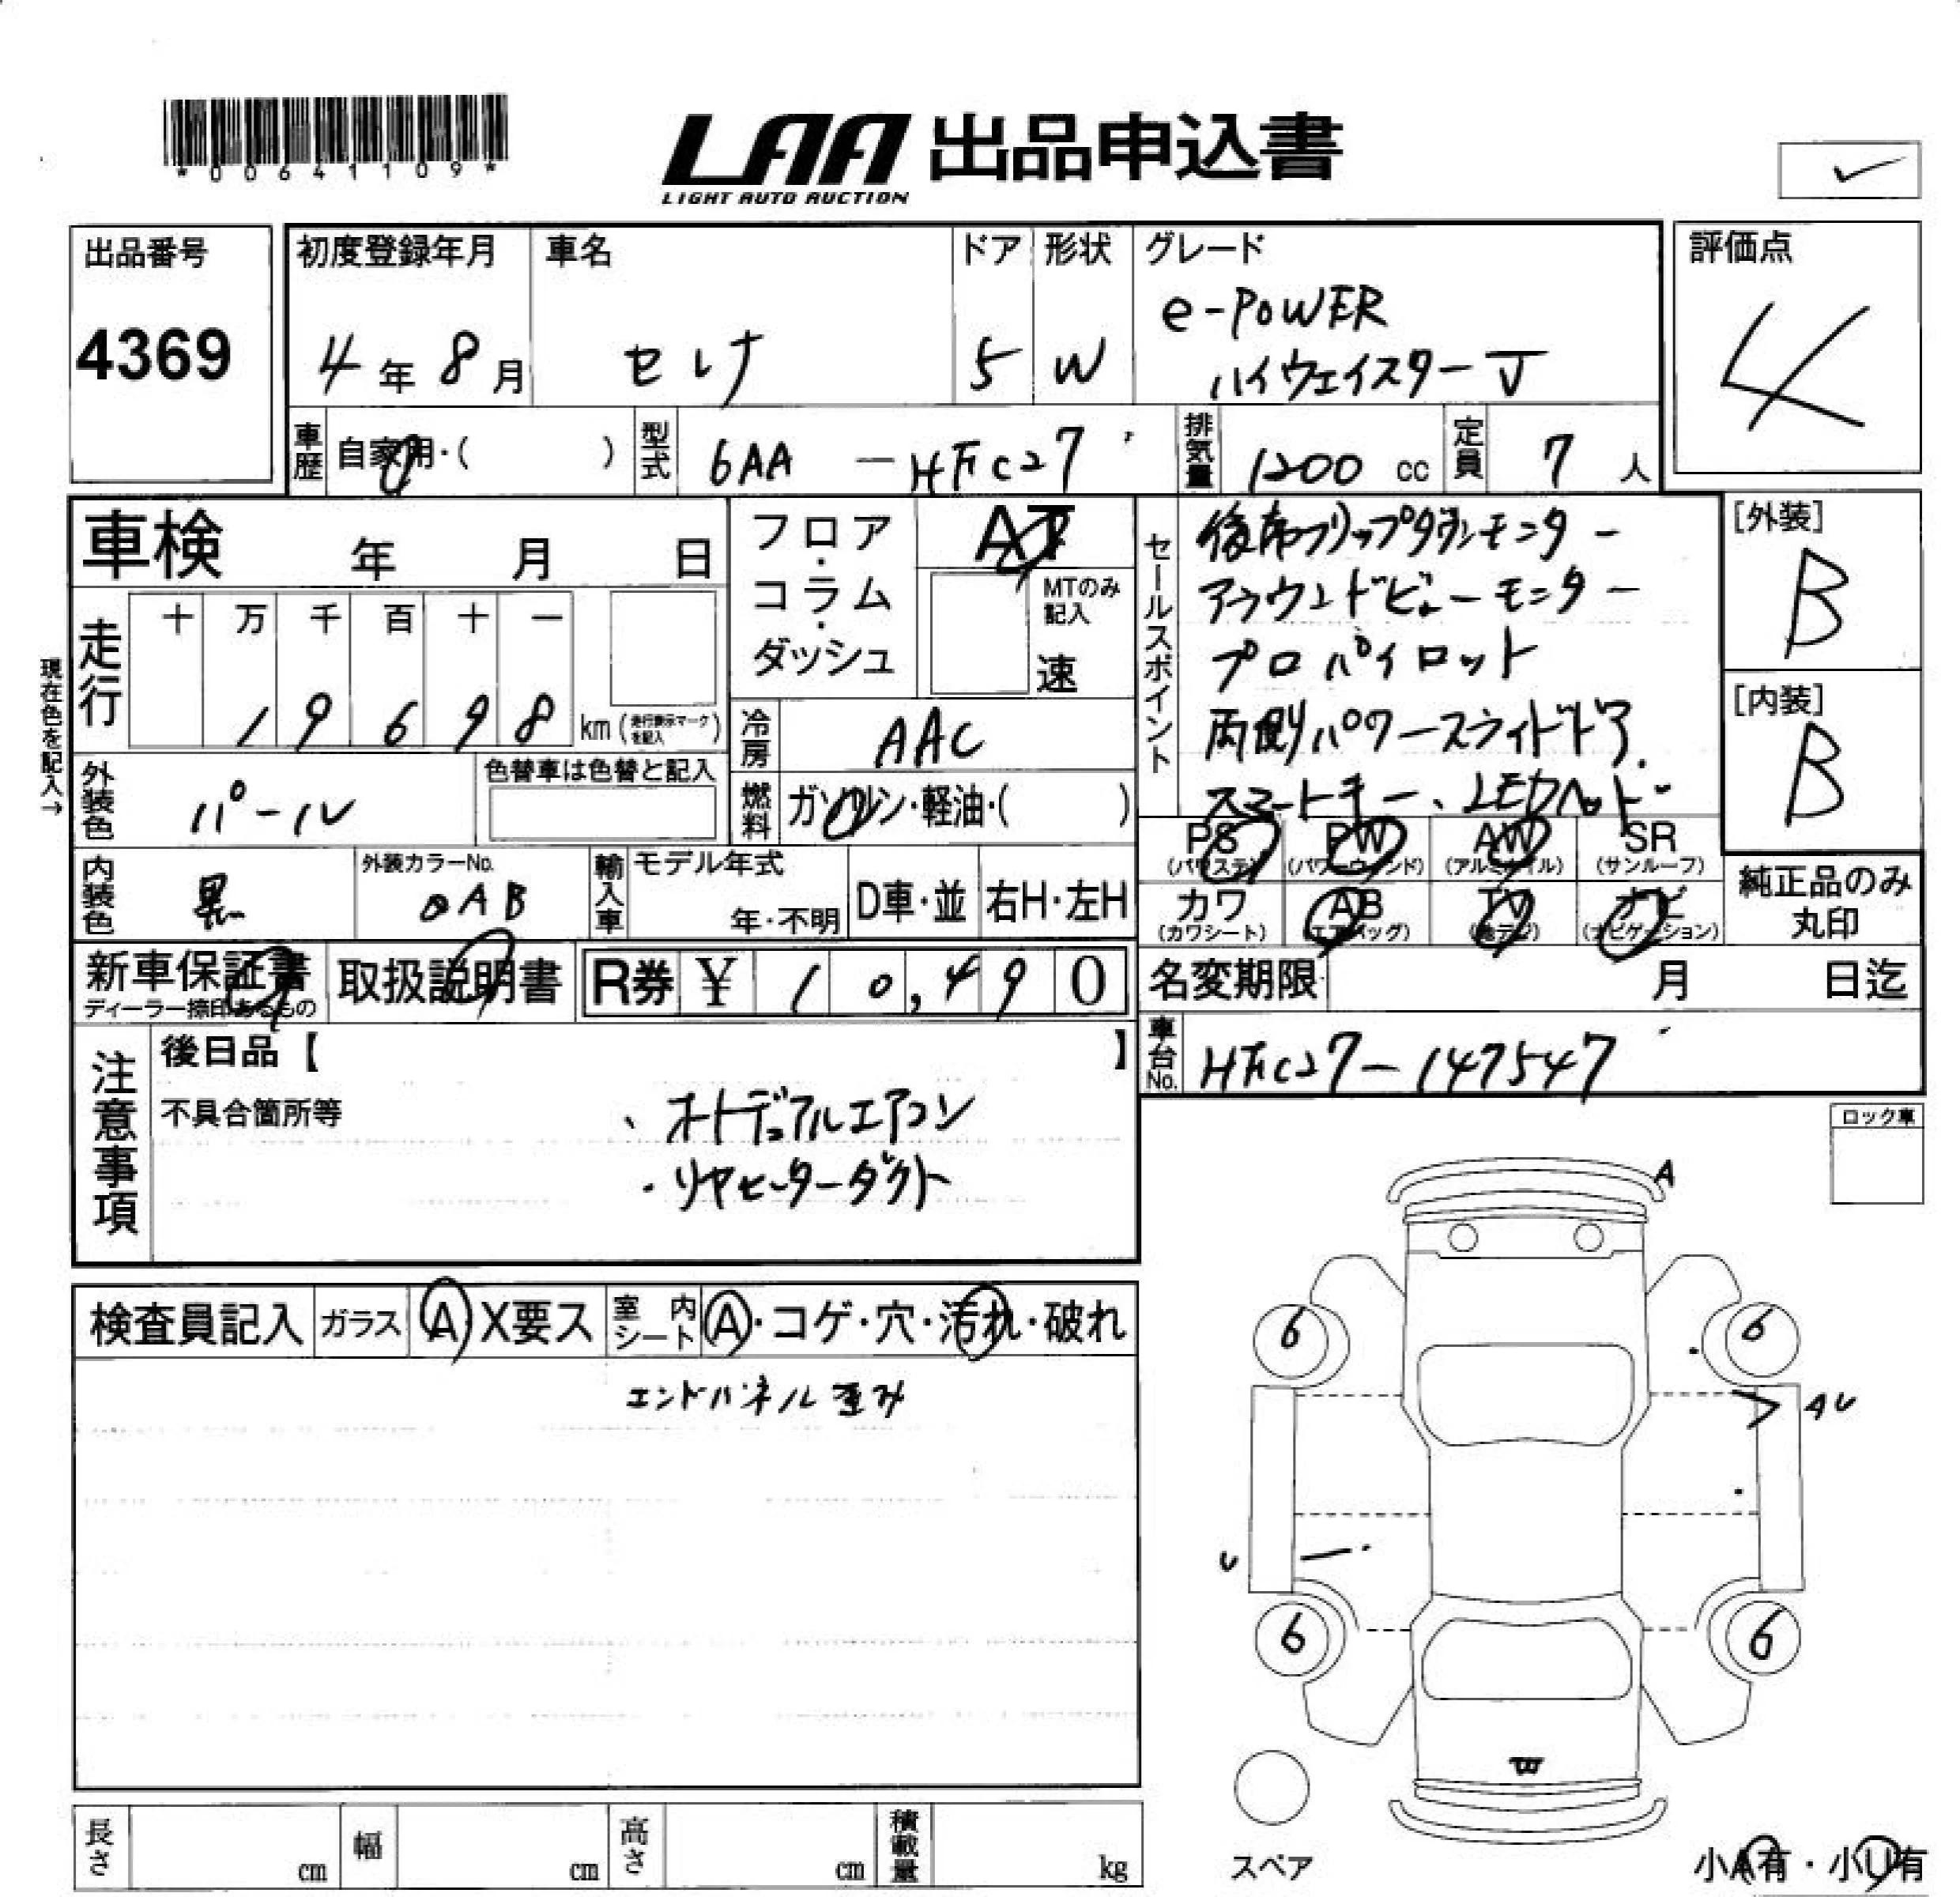 *00641109*
LAA 出品申込書
LIGHT AUTO AUCTION
出品番号
4369
初度登録年月
4年8月
車名
セレナ
ドア
5
形状
W
グレード
e-POWER
ハイウェイスターJ
評価点
4
車歴
自家用・( )
型式
6AA - HFC27
排気量
1200 cc
定員
7 人
車検 年 月 日
現在色を記入→
走行
十 万 千 百 十 一
1 9 6 9 8 km (走行表示マークを記入)
フロア・コラム・ダッシュ
AT
MTのみ記入
速
冷房
AAC
燃料
ガソリン・軽油・( )
外装色
パール
色替車は色替と記入
内装色
黒
外装カラーNo.
QAB
輸入車
モデル年式
年・不明
D車・並
右H・左H
セールスポイント
後席フリップダウンモニター
アラウンドビューモニター
プロパイロット
両側パワースライドドア.
スマートキー、LEDヘッド
[外装]
B
[内装]
B
PS (パワステ)
PW (パワーウィンド)
AW (アルミホイル)
SR (サンルーフ)
カワ (カワシート)
AB (エアバッグ)
TV (地デジ)
ナビ (ナビゲーション)
純正品のみ
丸印
新車保証書
ディーラー捺印あるもの
取扱説明書
R券 ¥ 10,490
名変期限 月 日迄
車台No.
HFC27-147547
注意事項
後日品【 】
不具合箇所等
、オートデュアルエアコン
・リヤヒーターダクト
ロック車
検査員記入
ガラス
A X要ス
室内シート
A・コゲ・穴・汚れ・破れ
エンドパネル歪み
A
6
6
AU
U
6
6
W
スペア
小A有・小U有
長さ cm
幅 cm
高さ cm
積載量 kg